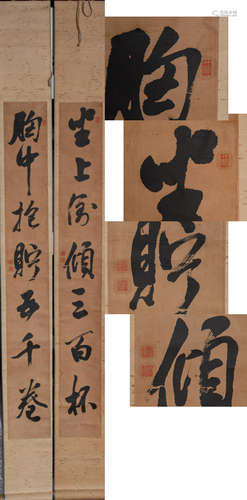 坐上傾三百杯
胸中抱貯五千卷
胸
坐
貯
傾